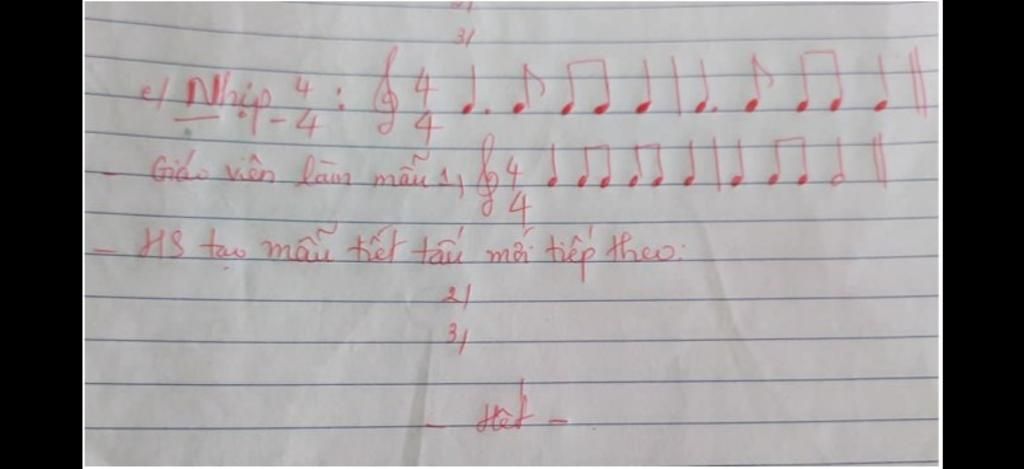 3/
c/ Nhịp 4/4 : 4/4
- Giáo viên làm mẫu 1, 4/4
- HS tạo mẫu tiết tấu mới tiếp theo:
2/
3/
- Hết -